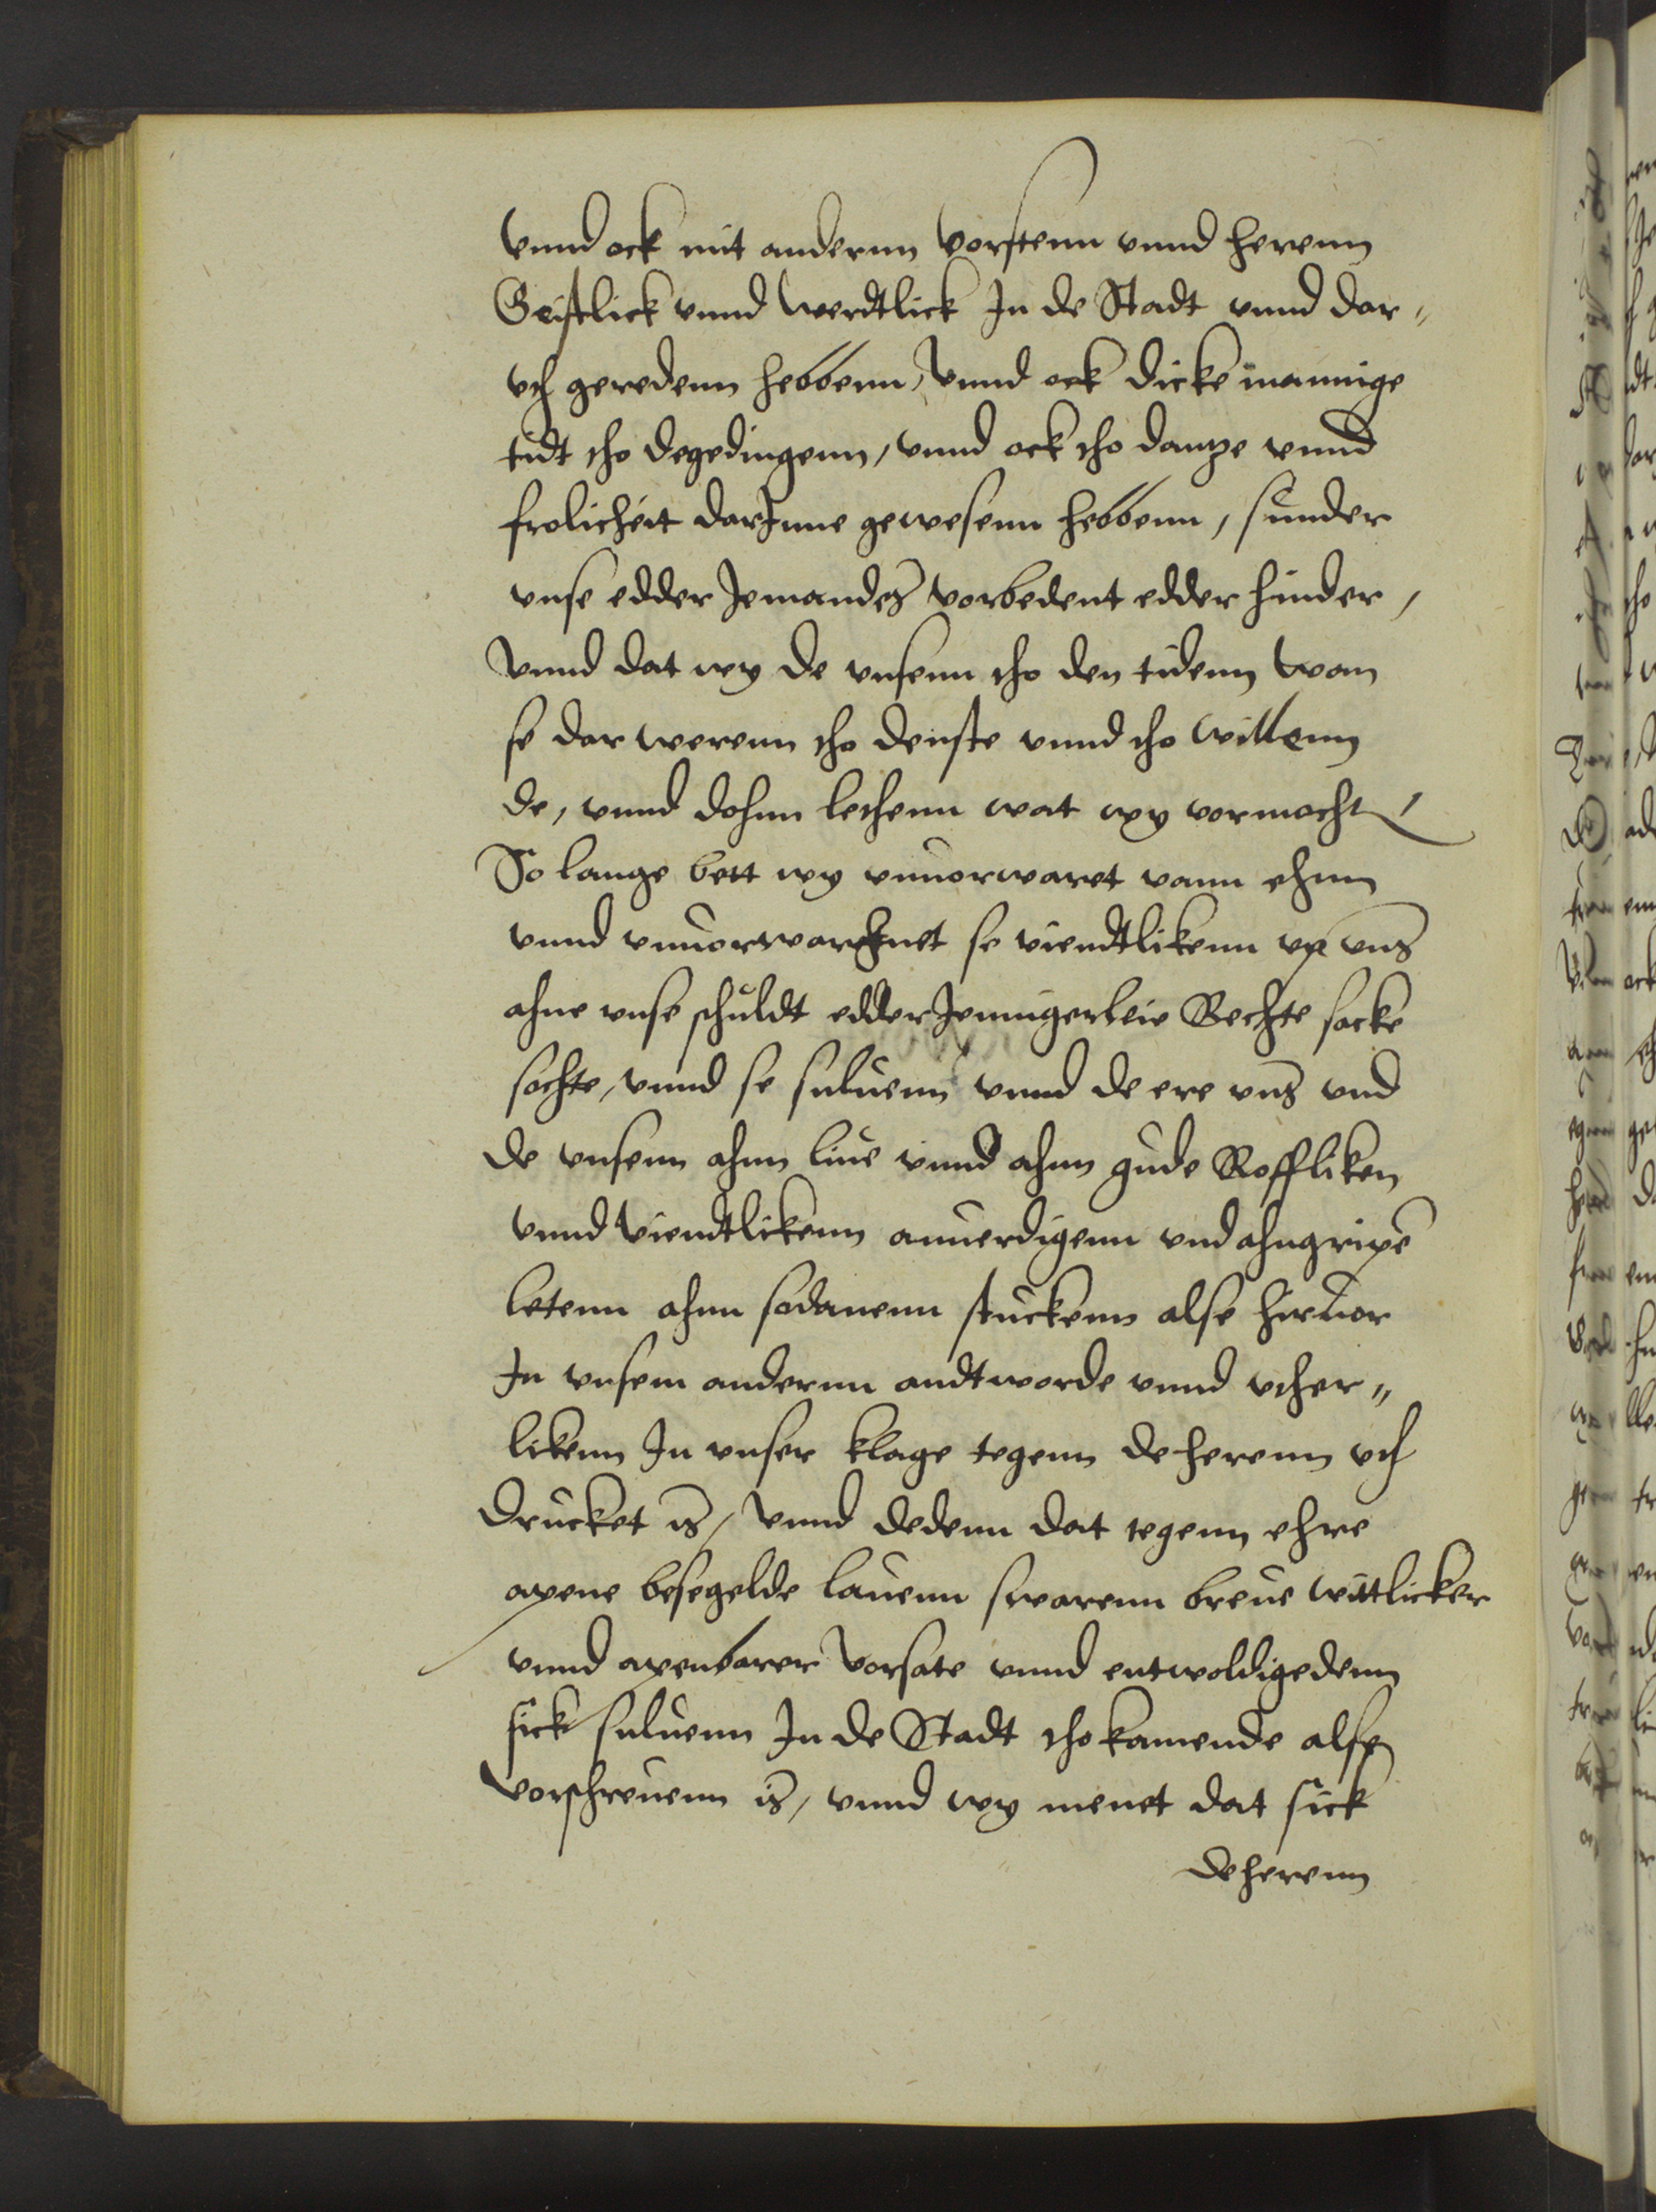 Vnnd ock mit anderen Vorstenn vnnd herenn
Geistlick vnnd Werdtlick In de Stadt vnnd dar„
vth geredenn hebbenn, Vnnd ock dicke mannige
tidt tho degedingenn, vnnd ock tho dantze vnnd
frolicheit darInne gewesenn hebbenn, sunder
vnse edder Jemandes vorbedent edder hinder,
Vnnd dat wy de vnsenn tho den tidenn Wan
se dar werenn tho denste vnnd tho willenn
de, vnnd dohnn lethenn wat wy vormocht
So lange bett wy vnuorwaret vann ehnn
vnnd vnuorwarchnet se viendtlikenn vp vns
ahne vnse schuldt edder Jennigerleie Rechte sacke
sochte, vnnd se suluenn vnnd de ere vns vnd
de vnsenn ahnn liue vnnd ahnn gude Roffliken
vnnd Viendtlikenn anuerdigenn vnd ahngripe
letenn ahnn sodanenn stuckenn alse hirVor
In vnsem anderenn andtworde vnnd vther„
likenn In vnser klage tegenn de herenn vth
drucket is, Vnnd dedenn dat tegenn ehre
apene besegelde lauenn swarenn breue wittlicker
vnnd apenbarer Vorsate vnnd entwoldigedenn
sick suluenn In de Stadt tho kamende alse
vorschreuenn is, vnnd wy menet dat sick
de herenn